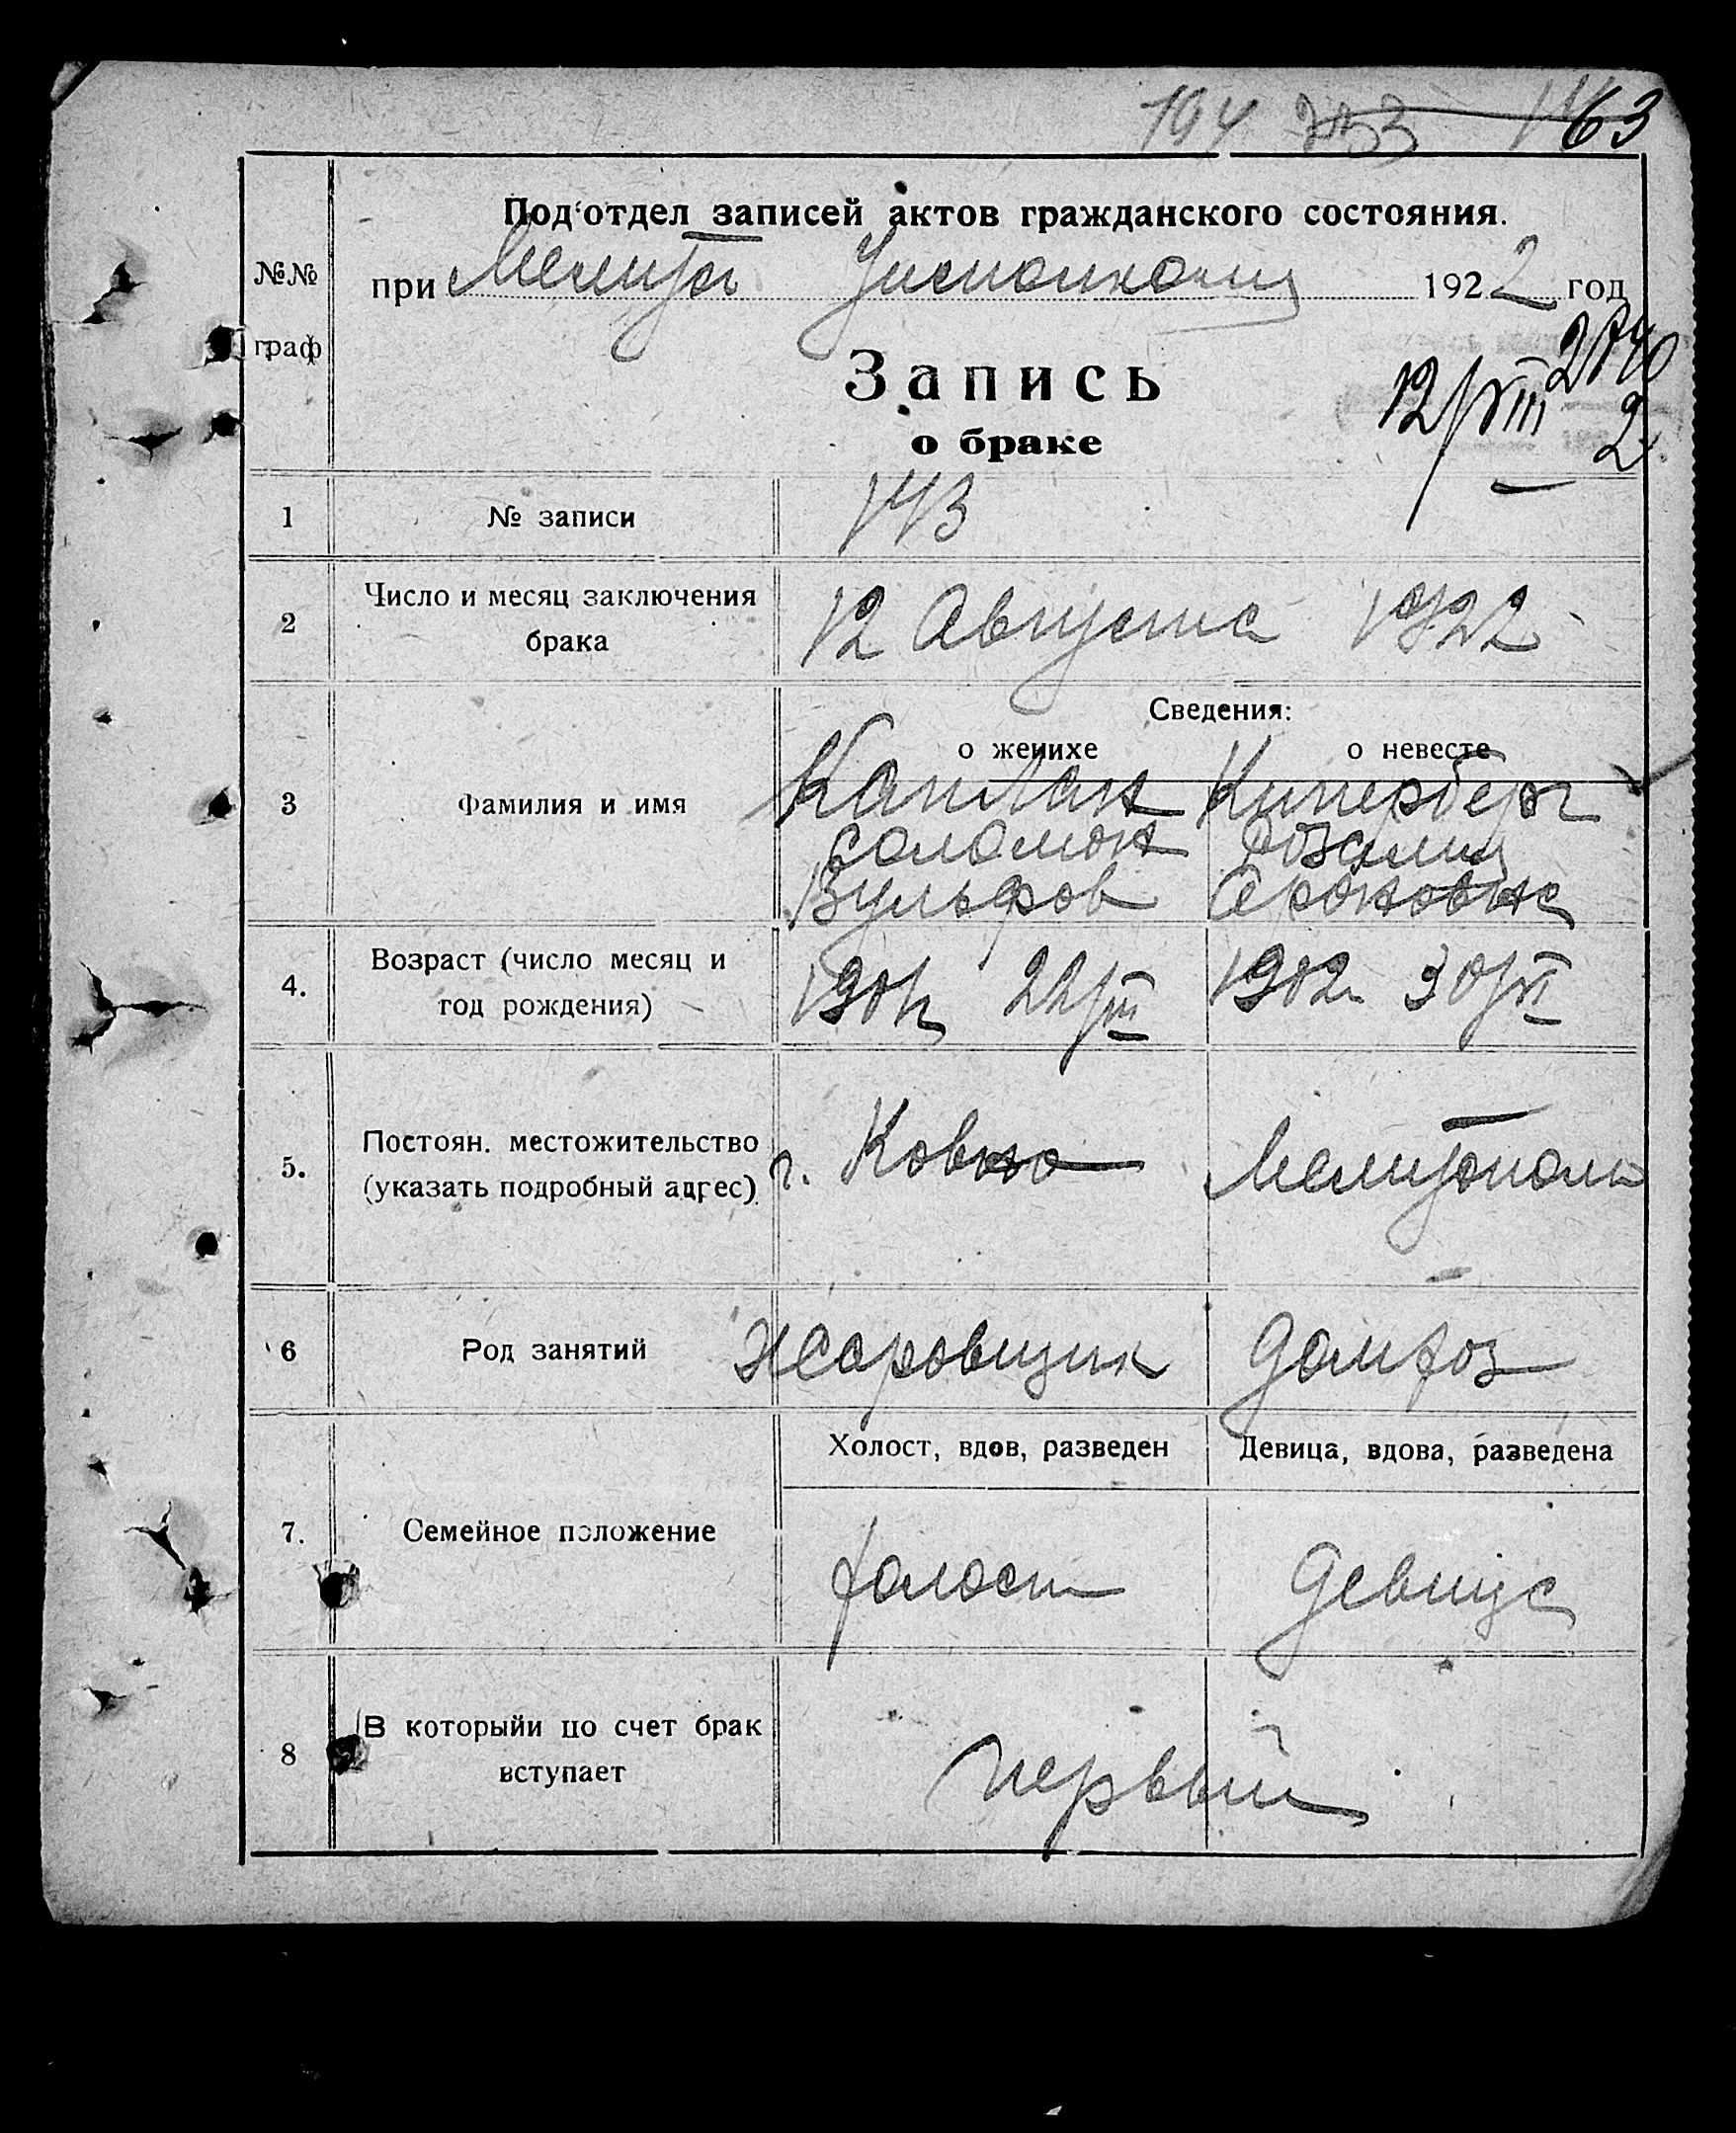 194 63
Под'отдел записей актов гражданского состояния.
№№ граф
при Мелитоп Уисполкоми 1922 год
Запись
о браке
12/VIII 2
1 № записи 143
2 Число и месяц заключения брака 12 Августа 1922
Сведения:
о женихе о невесте
3 Фамилия и имя Каплан Киперберг
Соломон Розалия
Вульфов Ароновна
4. Возраст (число месяц и
год рождения) 1901 г 22/III 1902 г 30/VI
5. Постоян. местожительство
(указать подробный адрес) г. Ковно Мелитополь
6 Род занятий Жаровщик дом хоз
Холост, вдов, разведен Девица, вдова, разведена
7. Семейное положение холост девица
8 В которыйи по счет брак
вступает первый